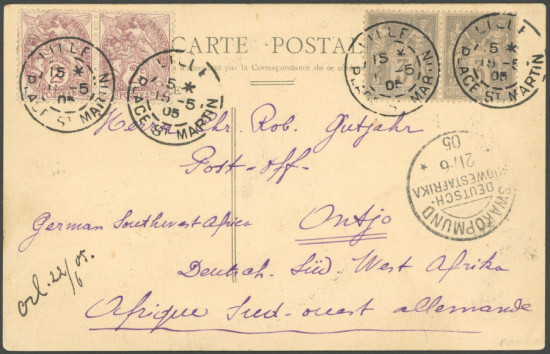 CARTE POSTALE
LILLE
PLACE ST MARTIN
15 -5
05
LILLE
PLACE ST MARTIN
15 -5
05
LILLE
PLACE ST MARTIN
15 -5
05
LILLE
PLACE ST MARTIN
15 -5
05
pas la Correspondance
Herrn Chr. Rob. Gutjahr
Post-Off-
German Southwest Africa
Ontjo
Deutsch. Süd. West Afrika
Afrique Sud-ouest allemande
SWAKOPMUND
DEUTSCH
SÜDWESTAFRIKA
21/6
05
22/6 05.